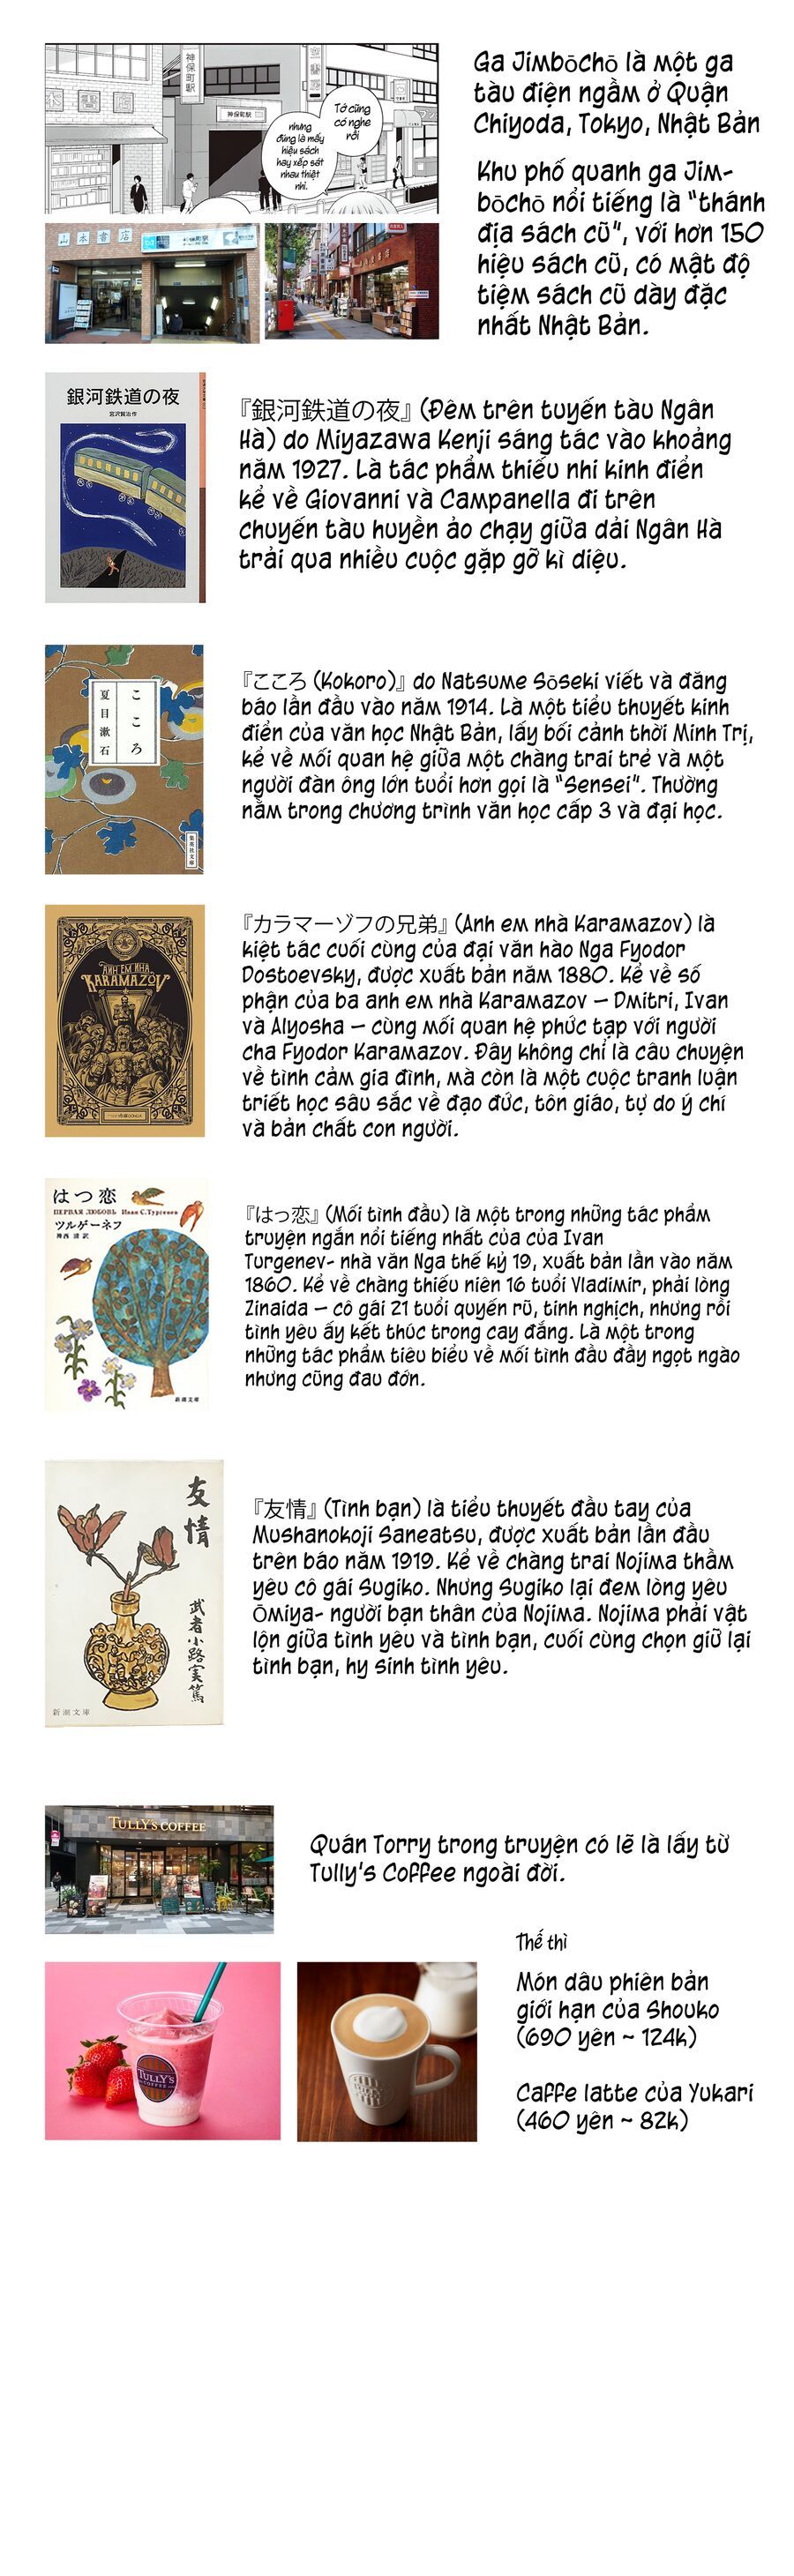 神保町駅
神保町駅
Tớ cũng
có nghe
nói
nhưng
đúng là mấy
hiệu sách
hay xếp sát
nhau thiệt
nhỉ.
Ga Jimbōchō là một ga
tàu điện ngầm ở Quận
Chiyoda, Tokyo, Nhật Bản
Khu phố quanh ga Jim-
bōchō nổi tiếng là "thánh
địa sách cũ", với hơn 150
hiệu sách cũ, có mật độ
tiệm sách cũ dày đặc
nhất Nhật Bản.
山本書店
銀河鉄道の夜
宮沢賢治作
『銀河鉄道の夜』 (Đêm trên tuyến tàu Ngân
Hà) do Miyazawa Kenji sáng tác vào khoảng
năm 1927. Là tác phẩm thiếu nhi kinh điển
kể về Giovanni và Campanella đi trên
chuyến tàu huyền ảo chạy giữa dải Ngân Hà
trải qua nhiều cuộc gặp gỡ kì diệu.
こころ
夏目漱石
集英社文庫
『こころ (Kokoro)』 do Natsume Sōseki viết và đăng
báo lần đầu vào năm 1914. Là một tiểu thuyết kinh
điển của văn học Nhật Bản, lấy bối cảnh thời Minh Trị,
kể về mối quan hệ giữa một chàng trai trẻ và một
người đàn ông lớn tuổi hơn gọi là "Sensei". Thường
nằm trong chương trình văn học cấp 3 và đại học.
ANH EM NHÀ
KARAMAZOV
『カラマーゾフの兄弟』 (Anh em nhà Karamazov) là
kiệt tác cuối cùng của đại văn hào Nga Fyodor
Dostoevsky, được xuất bản năm 1880. Kể về số
phận của ba anh em nhà Karamazov – Dmitri, Ivan
và Alyosha – cùng mối quan hệ phức tạp với người
cha Fyodor Karamazov. Đây không chỉ là câu chuyện
về tình cảm gia đình, mà còn là một cuộc tranh luận
triết học sâu sắc về đạo đức, tôn giáo, tự do ý chí
và bản chất con người.
はつ恋
ПЕРВАЯ ЛЮБОВЬ Иван С.Тургенев
ツルゲーネフ
神西 清 訳
新潮文庫
『はつ恋』 (Mối tình đầu) là một trong những tác phẩm
truyện ngắn nổi tiếng nhất của của Ivan
Turgenev- nhà văn Nga thế kỷ 19, xuất bản lần vào năm
1860. Kể về chàng thiếu niên 16 tuổi Vladimir, phải lòng
Zinaida – cô gái 21 tuổi quyến rũ, tinh nghịch, nhưng rồi
tình yêu ấy kết thúc trong cay đắng. Là một trong
những tác phẩm tiêu biểu về mối tình đầu đầy ngọt ngào
nhưng cũng đau đớn.
友情
武者小路実篤
新潮文庫
『友情』 (Tình bạn) là tiểu thuyết đầu tay của
Mushanokoji Saneatsu, được xuất bản lần đầu
trên báo năm 1919. Kể về chàng trai Nojima thầm
yêu cô gái Sugiko. Nhưng Sugiko lại đem lòng yêu
Ōmiya- người bạn thân của Nojima. Nojima phải vật
lộn giữa tình yêu và tình bạn, cuối cùng chọn giữ lại
tình bạn, hy sinh tình yêu.
TULLY'S COFFEE
Quán Torry trong truyện có lẽ là lấy từ
Tully's Coffee ngoài đời.
Thế thì
TULLY'S
COFFEE
Món dâu phiên bản
giới hạn của Shouko
(690 yên ~ 124k)
Caffe latte của Yukari
(460 yên ~ 82k)